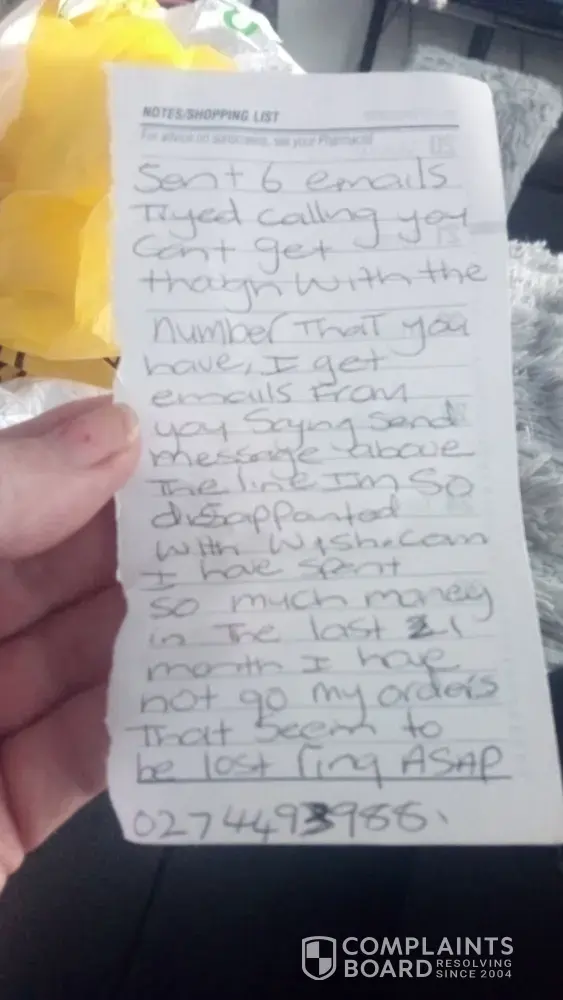 NOTES/SHOPPING LIST
For advice on sunscreens, see your Pharmacist
Sent 6 emails
Tryed calling you
Cant get
thaogn with the
number That you
have, I get
emails From
you Saying Send
message above
The line Im So
dissappanted
with wish.com
I have spent
So much money
in The last 1
month I have
not go my orders
That Seem to
be lost ring ASAP
0274493988.
COMPLAINTS
BOARD RESOLVING
SINCE 2004